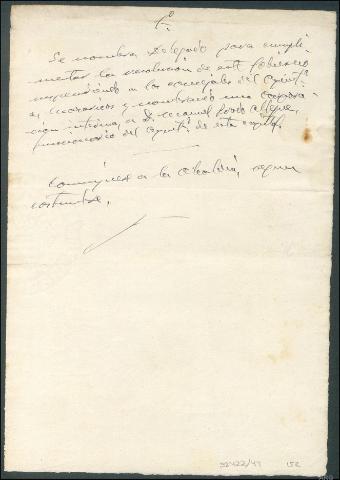 1º
Se nombra Delegado para cumpli-
mentar la resolución de este Gobierno
suspendiendo a los concejales del Ayunt.
de y nombrando una Corpora-
ción interina, a D. Manuel
funcionario del Ayunt. de esta capital.
Comuníquese a la Alcaldía, según
costumbre.
32422/47 152